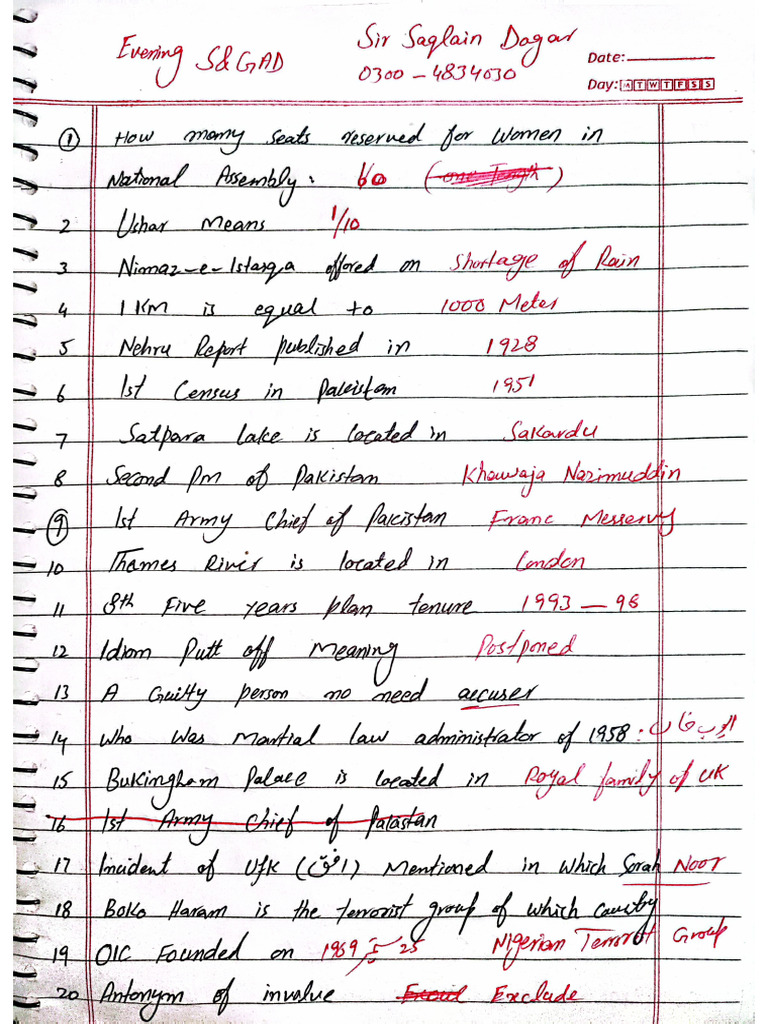 Evening S&GAD Sir Saqlain Dogar
0300-4834030
Date:
Day: M T W T F S S
1 How many seats reserved for Women in
National Assembly: 60 (one tength)
2 Ushar Means 1/10
3 Nimaz-e-Istasqa offered on Shortage of Rain
4 1 KM is equal to 1000 Meter
5 Nehru Report published in 1928
6 1st Census in Pakistan 1951
7 Satpara lake is located in Sakardu
8 Second PM of Pakistan Khawaja Nazimuddin
9 1st Army Chief of Pakistan Franc Messervy
10 Thames River is located in London
11 8th Five years plan tenure 1993 – 98
12 Idiom Putt off Meaning Postponed
13 A Guilty person no need accuser
14 Who was Martial law administrator of 1958: ایوب خان
15 Bukingham Palace is located in Royal family of UK
16 1st Army Chief of Palastan
17 Incident of Ufk (افق) Mentioned in which Sorah Noor
18 Boko Haram is the terrorist group of which country
Nigerian Terrorist Group
19 OIC Founded on 1969 ستمبر 25
20 Antonym of invalue Exclude